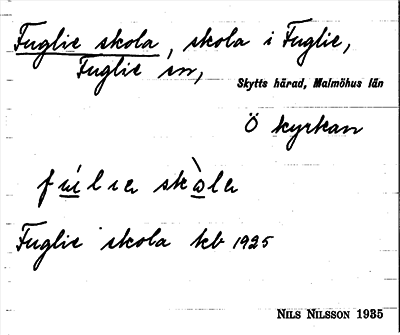 Fuglie skola, skola i Fuglie,
Fuglie sn,
Skytts härad, Malmöhus län
Ö kyrkan
Fuglie skola kb 1925
NILS NILSSON 1935